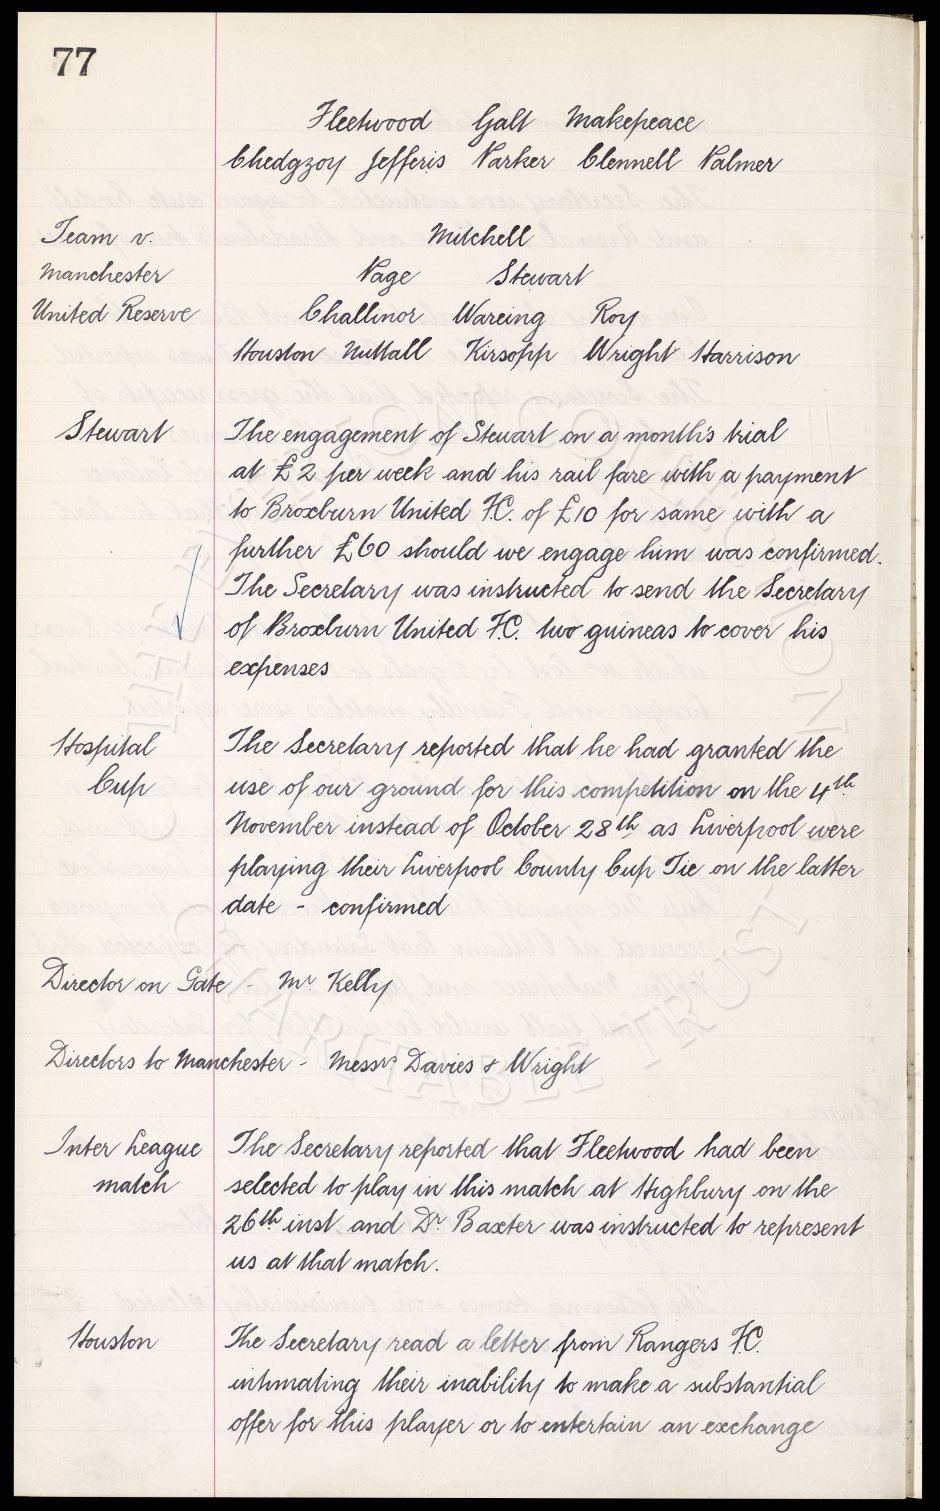 77
Fleetwood Galt Makepeace
Chedgzoy Jefferis Parker Clennell Palmer
Team v. Mitchell
Manchester Page Stewart
United Reserve Challinor Wareing Roy
Houston Nuttall Kirsopp Wright Harrison
Stewart The engagement of Stewart on a month's trial
at £2 per week and his rail fare with a payment
to Broxburn United F.C. of £10 for same with a
further £60 should we engage him was confirmed.
The Secretary was instructed to send the Secretary
of Broxburn United F.C. two guineas to cover his
expenses
Hospital The Secretary reported that he had granted the
Cup use of our ground for this competition on the 4th
November instead of October 28th as Liverpool were
playing their Liverpool County Cup Tie on the latter
date - confirmed
Director on Gate - Mr Kelly
Directors to Manchester - Messrs Davies & Wright
Inter League The Secretary reported that Fleetwood had been
match selected to play in this match at Highbury on the
26th inst and Dr Baxter was instructed to represent
us at that match.
Houston The Secretary read a letter from Rangers F.C.
intimating their inability to make a substantial
offer for this player or to entertain an exchange
THE EVERTON COLLECTION
CHARITABLE TRUST